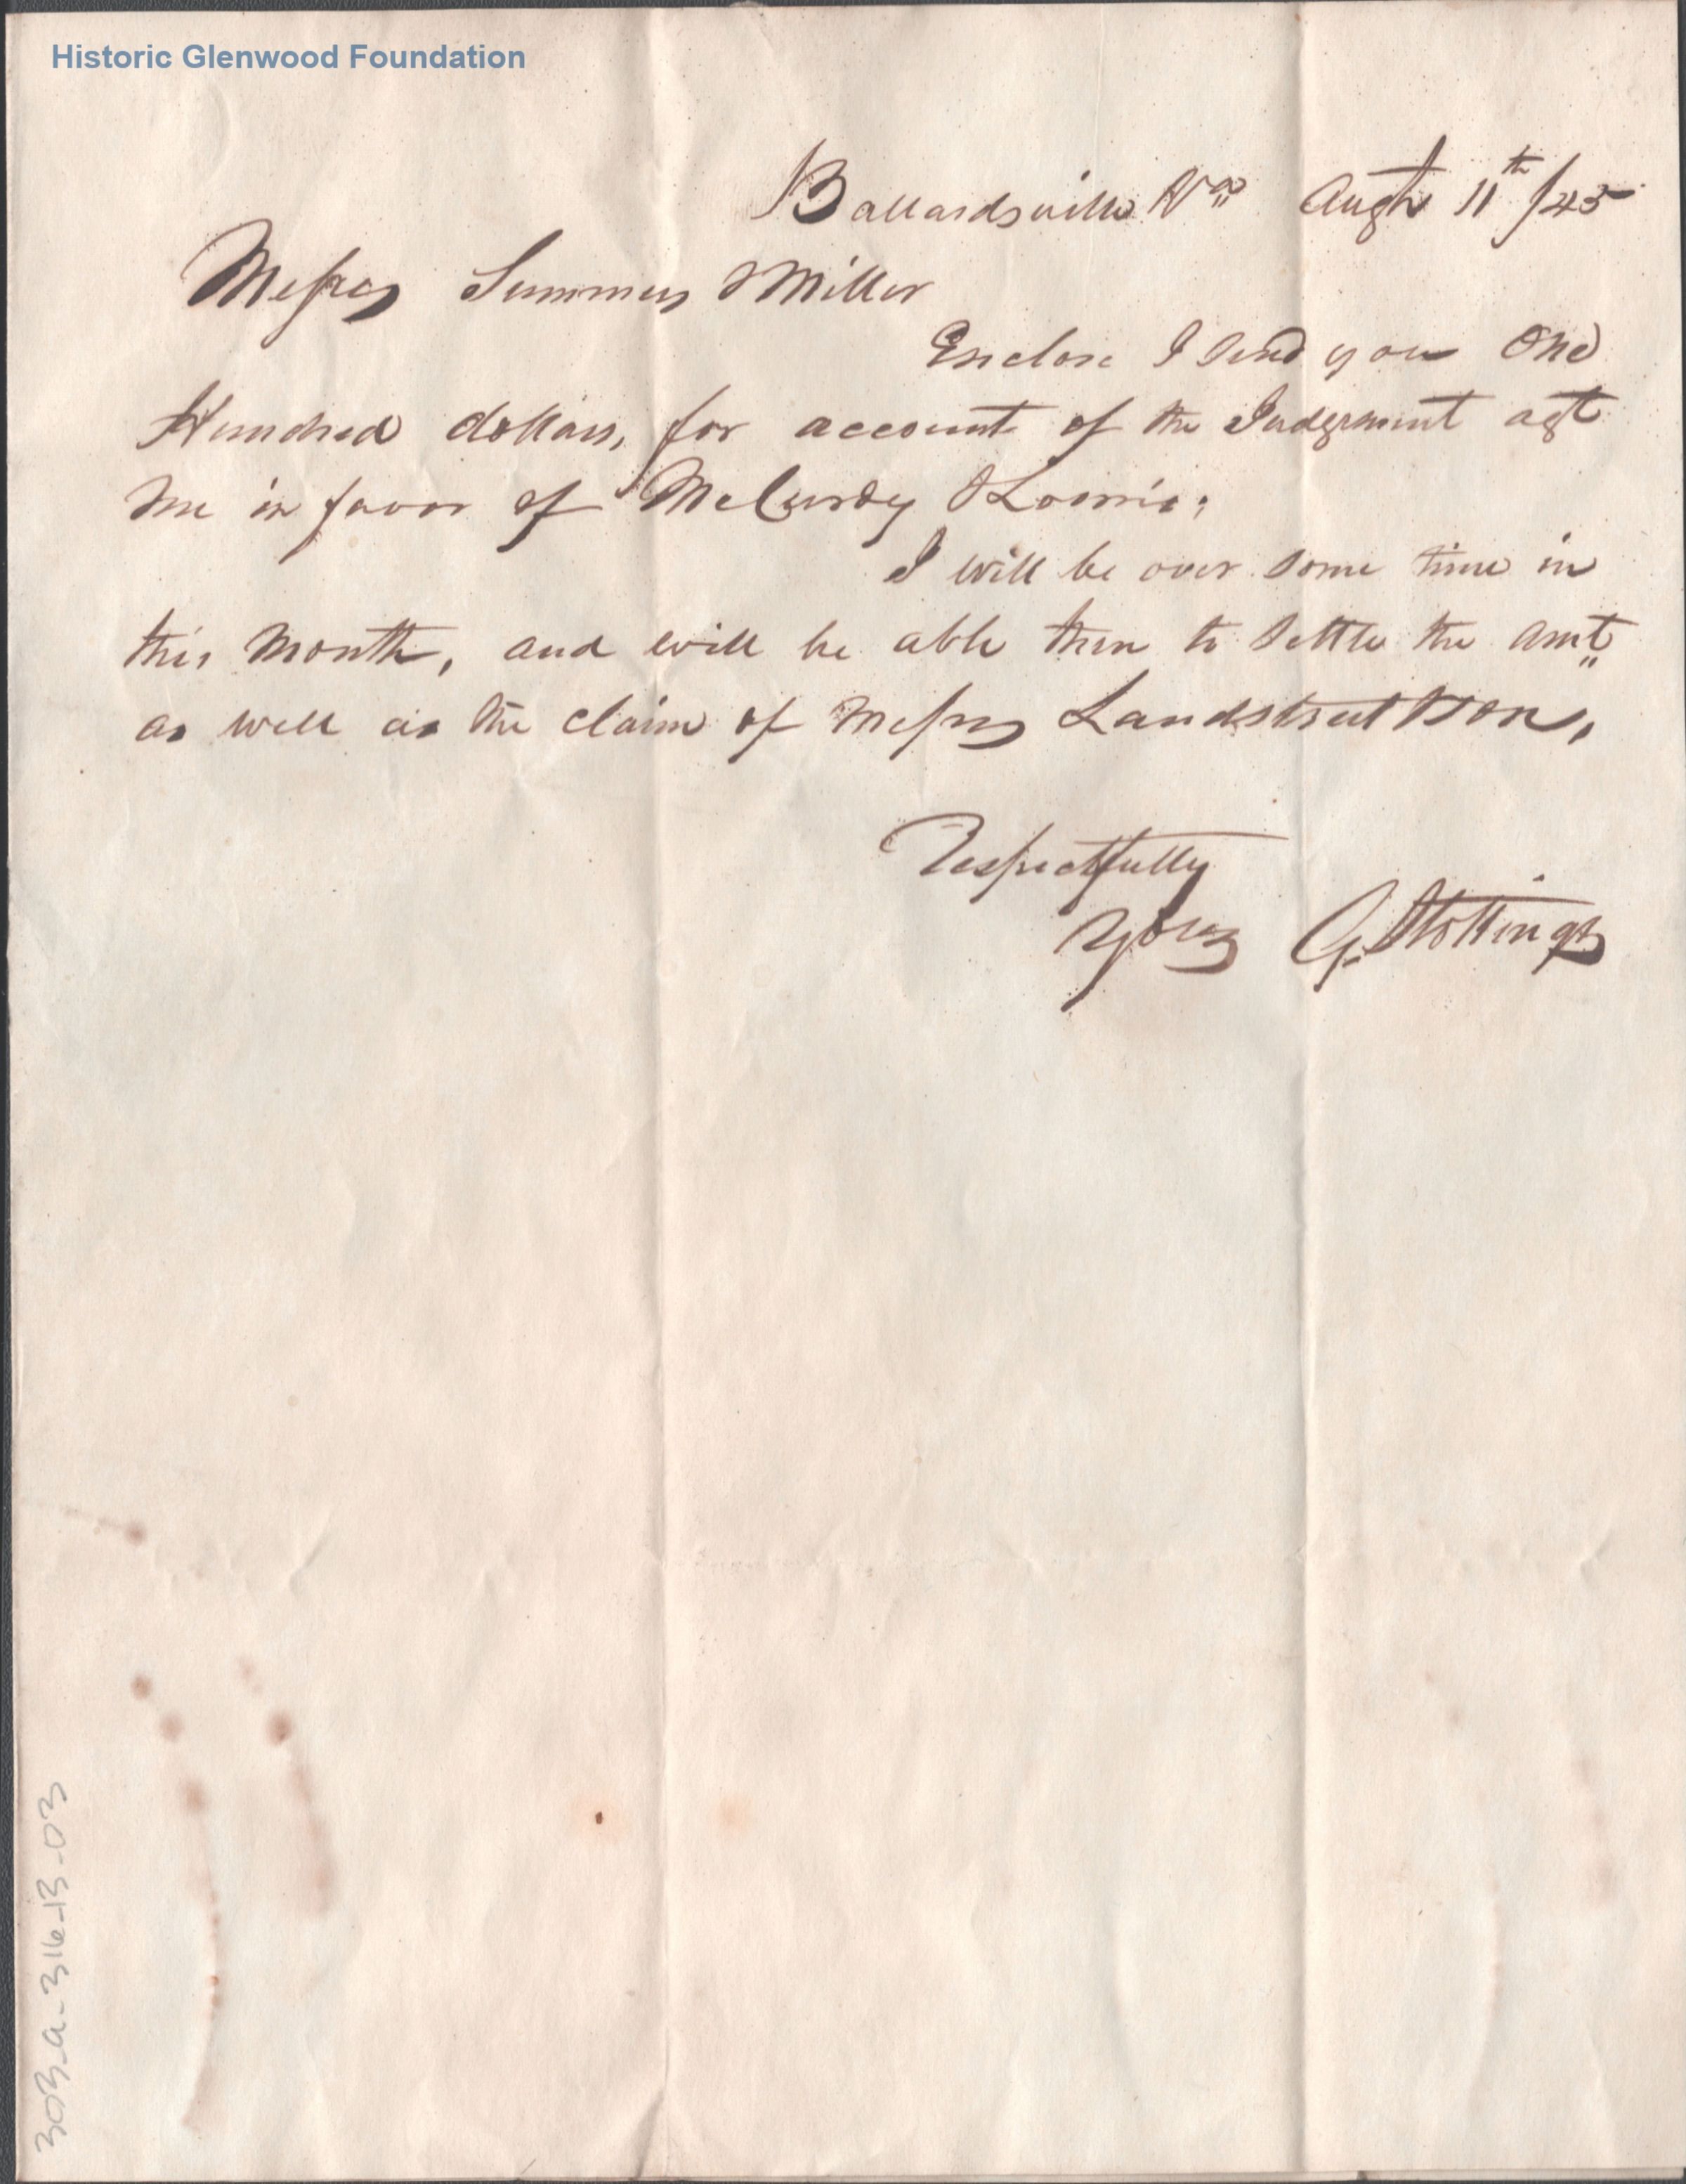 Historic Glenwood Foundation
Ballardsville Va Augt 11th /45
Messrs Summers & Miller
Enclose I send you One
Hundred dollars, for account of the Judgement agt
me in favor of McCurdy & Loomis;
I will be over some time in
this Month, and will be able then to settle the amt
as well as the claim of Messrs Landstreet & Son,
Respectfully
Yours G. Stollings
303-a-316-13-03